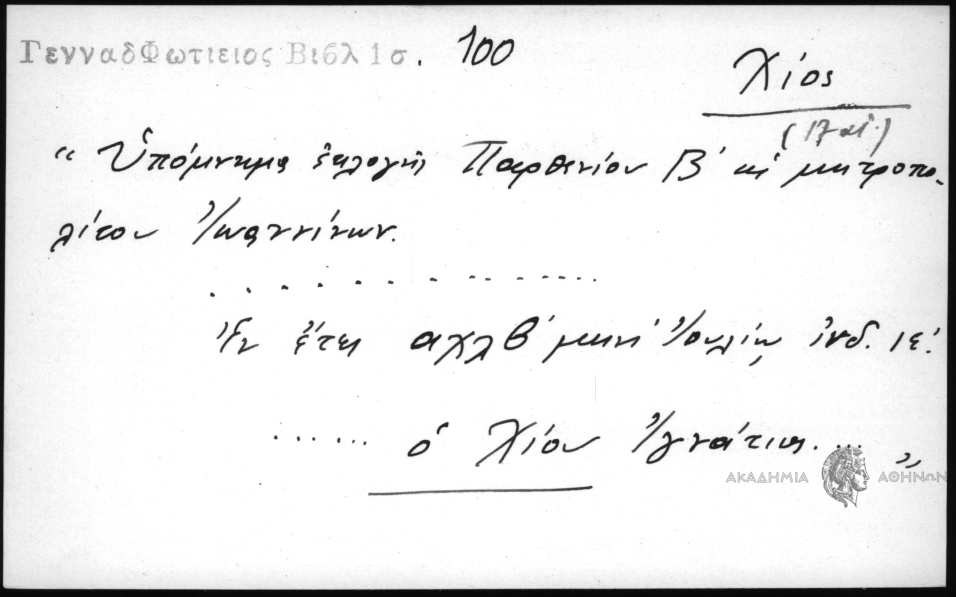 ΓενναδΦωτιειος Βιβλ 1σ. 100
Χίος
(17 αἰ.)
“ Ὑπόμνημα ἐκλογῆς Παρθενίου Β΄ κὶ μητροπο-
λίτου Ἰωαννίνων.
. . . . . . . . . . . . .
Ἐν ἔτει αχλβ΄ μηνὶ Ἰουλίῳ ἰνδ. ιε΄.
...... ὁ Χίου Ἰγνάτιος.... ”
ΑΚΑΔΗΜΙΑ ΑΘΗΝΩΝ